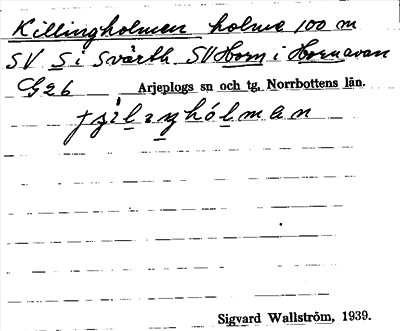 Killingholmen holme 100 m
SV S i Svärth SV Horn i Hornavan
G26 Arjeplogs sn och tg. Norrbottens län.
Sigvard Wallström, 1939.